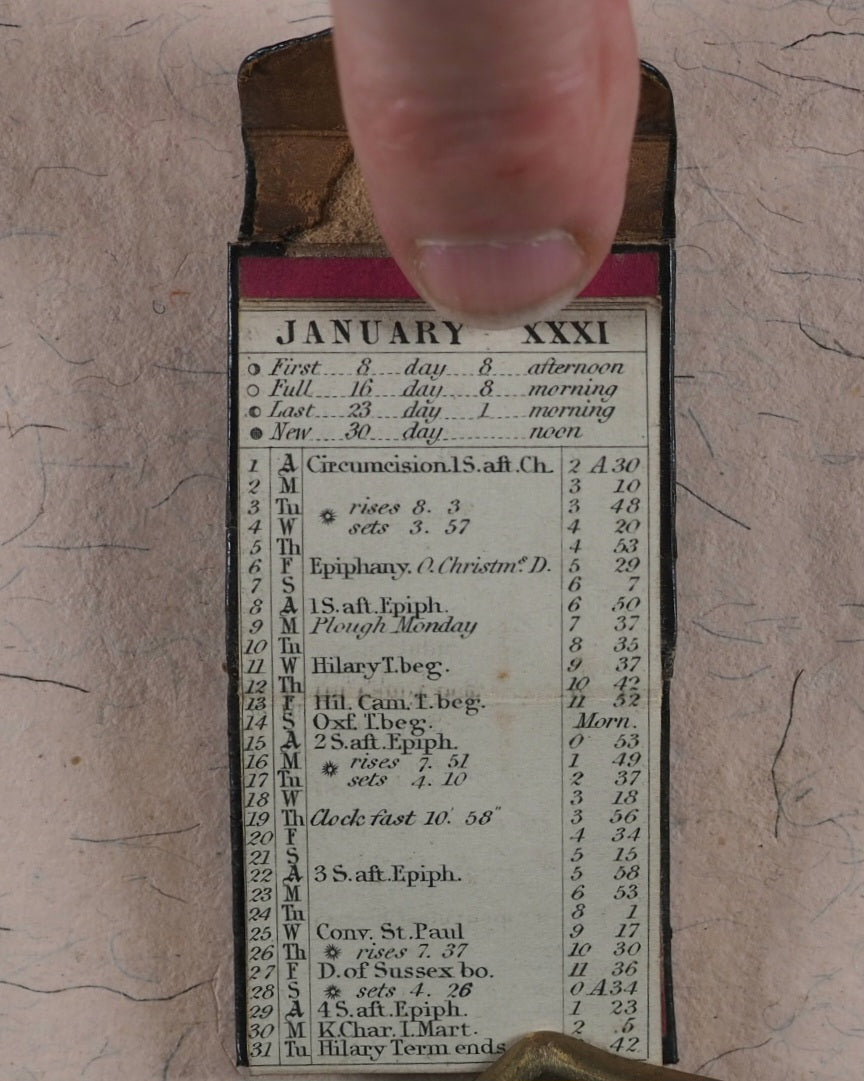 JANUARY XXXI
First 8 day 8 afternoon
Full 16 day 8 morning
Last 23 day 1 morning
New 30 day noon
1 A Circumcision.1S.aft.Ch. 2 A 30
2 M 3 10
3 Tu rises 8. 3 3 48
4 W sets 3. 57 4 20
5 Th 4 53
6 F Epiphany. O.Christmˢ D. 5 29
7 S 6 7
8 A 1S.aft.Epiph. 6 50
9 M Plough Monday 7 37
10 Tu 8 35
11 W Hilary T.beg. 9 37
12 Th 10 42
13 F Hil. Cam. T. beg. 11 52
14 S Oxf. T.beg. Morn.
15 A 2 S.aft.Epiph. 0 53
16 M rises 7. 51 1 49
17 Tu sets 4. 10 2 37
18 W 3 18
19 Th Clock fast 10.' 58" 3 56
20 F 4 34
21 S 5 15
22 A 3 S.aft.Epiph. 5 58
23 M 6 53
24 Tu 8 1
25 W Conv. St.Paul 9 17
26 Th rises 7. 37 10 30
27 F D.of Sussex bo. 11 36
28 S sets 4. 26 0 A 34
29 A 4 S.aft.Epiph. 1 23
30 M K.Char. I.Mart. 2 .5
31 Tu Hilary Term ends 42